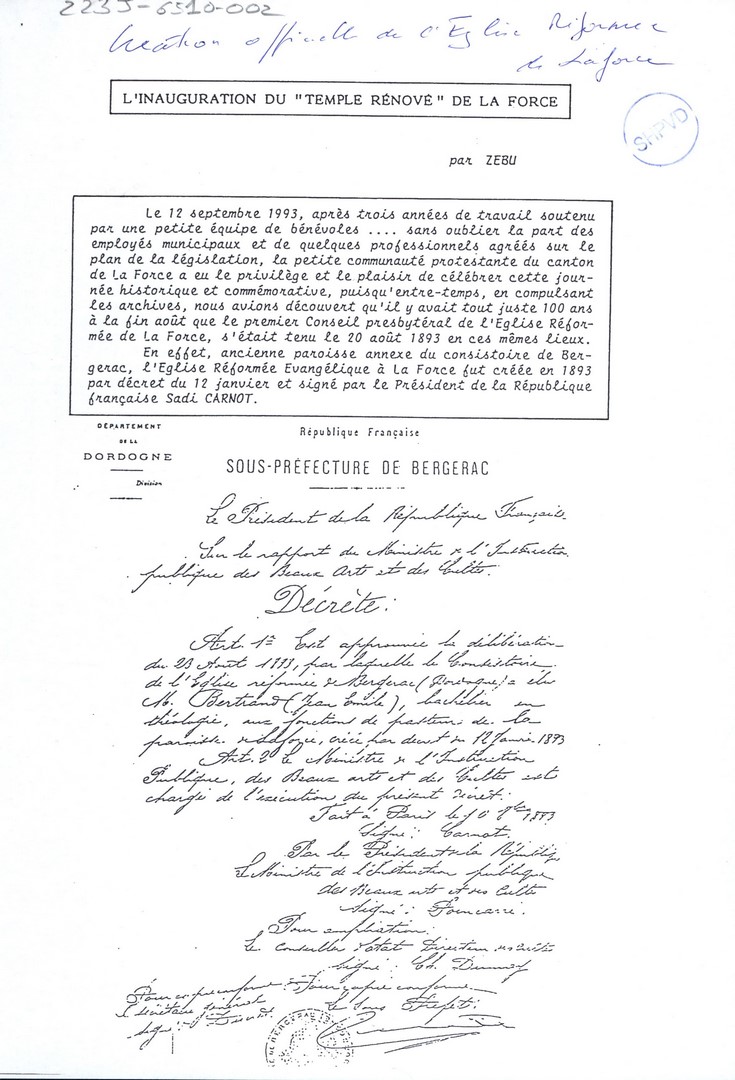 223J-6510-002
Création officielle de l'Eglise Réformée
de Laforce
L'INAUGURATION DU "TEMPLE RÉNOVÉ" DE LA FORCE
SHPVD
par ZEBU
Le 12 septembre 1993, après trois années de travail soutenu
par une petite équipe de bénévoles .... sans oublier la part des
employés municipaux et de quelques professionnels agréés sur le
plan de la législation, la petite communauté protestante du canton
de La Force a eu le privilège et le plaisir de célébrer cette jour-
née historique et commémorative, puisqu'entre-temps, en compulsant
les archives, nous avions découvert qu'il y avait tout juste 100 ans
à la fin août que le premier Conseil presbytéral de l'Eglise Réfor-
mée de La Force, s'était tenu le 20 août 1893 en ces mêmes lieux.
En effet, ancienne paroisse annexe du consistoire de Ber-
gerac, l'Eglise Réformée Evangélique à La Force fut créée en 1893
par décret du 12 janvier et signé par le Président de la République
française Sadi CARNOT.
DÉPARTEMENT
DE LA
DORDOGNE
Division
République Française
SOUS-PRÉFECTURE DE BERGERAC
Le Président de la République Française
Sur le rapport du Ministre de l'Instruction
publique des Beaux Arts et des Cultes.
Décrète:
Art. 1er Est approuvée la délibération
du 23 Août 1893, par laquelle le Consistoire
de l'Eglise réformée de Bergerac (Dordogne) a élu
M. Bertrand (Jean Emile), bachelier en
théologie, aux fonctions de pasteur de la
paroisse de Laforce, créée par décret du 12 Janv. 1893
Art. 2 Le Ministre de l'Instruction
Publique, des Beaux arts et des Cultes est
chargé de l'exécution du présent décret.
Fait à Paris le 10 8bre 1893
Signé: Carnot.
Par le Président de la République
Le Ministre de l'Instruction publique
des Beaux arts et des Cultes
Signé: Poincarré.
Pour ampliation:
Le Conseiller d'Etat Directeur des Cultes
Signé: Ch. Dumay
Pour copie conforme: Pour copie conforme
Le secrétaire général Le Sous Préfet:
Signé:
BERGERAC